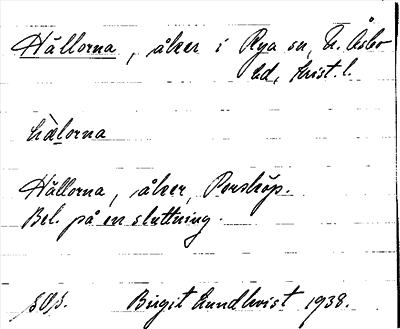 Hällorna, åker i Rya sn, N. Åsbo
hd, Krist. l.
hä̀lorna
Hällorna, åker, Porshöp.
Bel. på en sluttning.
Birgit Lundkvist 1938.